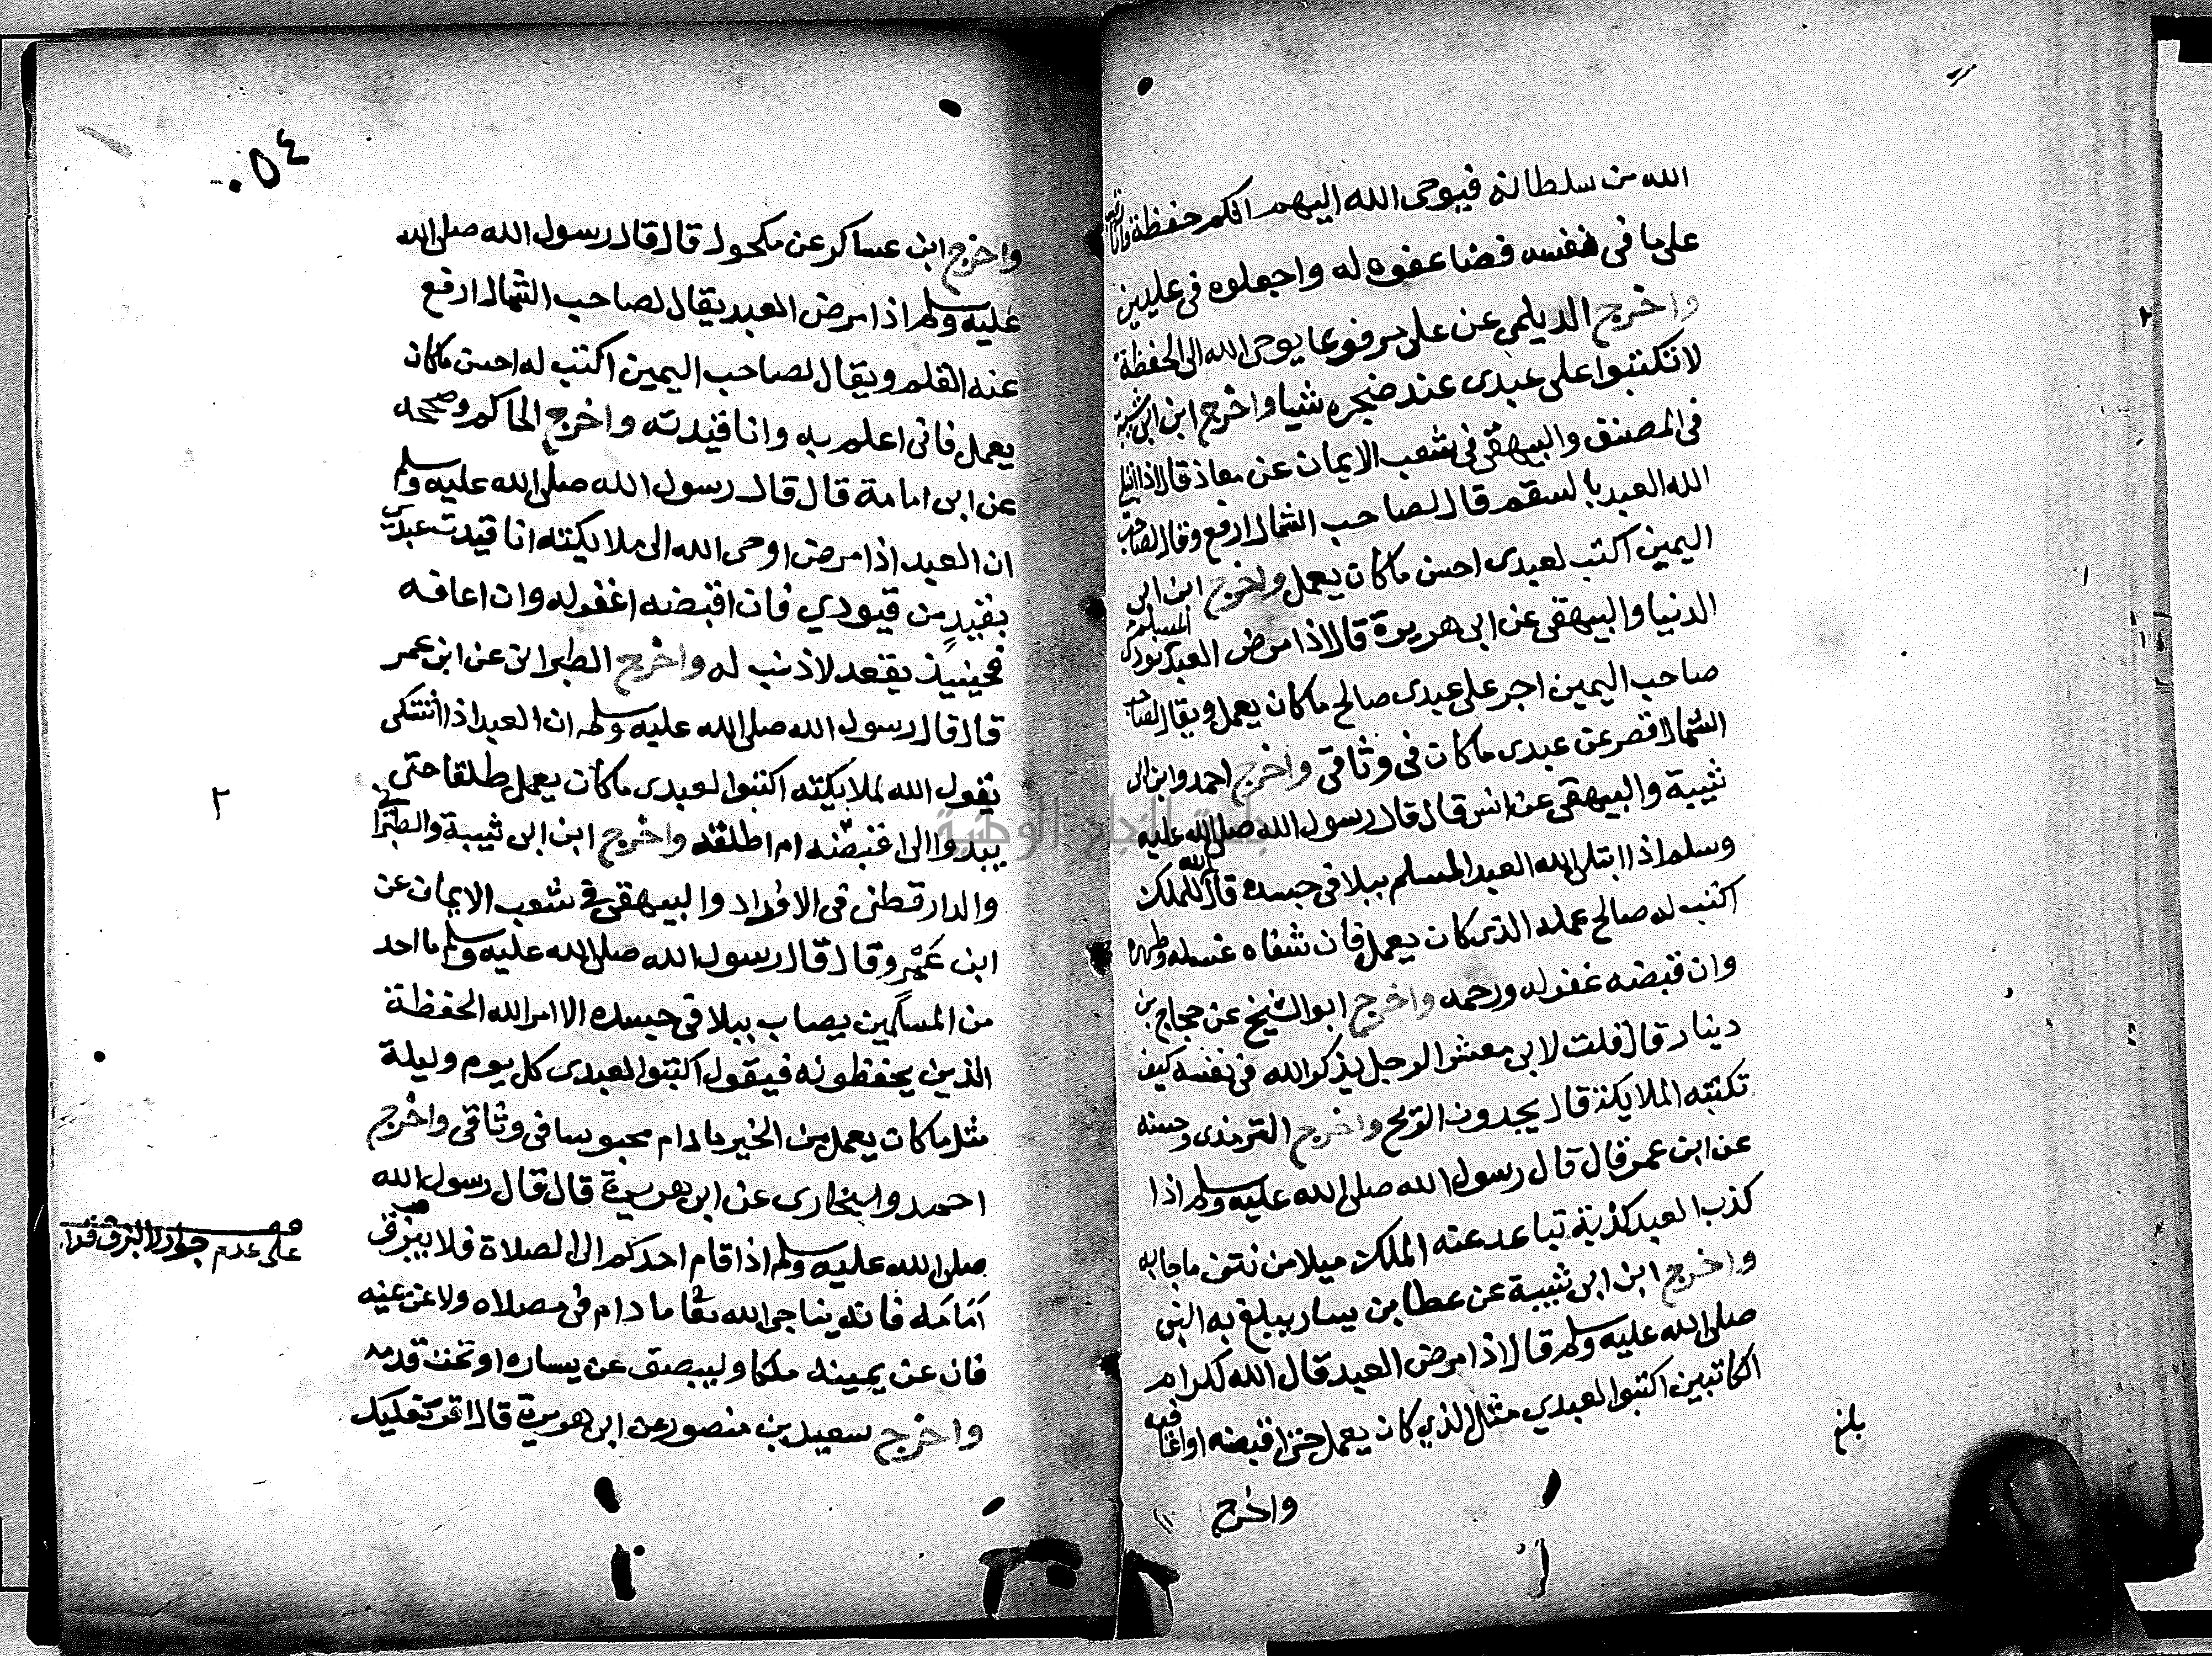 الله من سلطانه فيوحى الله اليهم انكم حفظة وانا
على ما فى نفسه فضاعفوه له واجعلوه فى عليين
واخرج الديلمى عن على مرفوعا يوحى الله الى الحفظة
لا تكتبوا على عبدى عند ضجره شيا واخرج ابن ابى شيبة
فى المصنف والبيهقى فى شعب الايمان عن معاذ قال اذا ابتلى
الله العبد بالسقم قال لصاحب الشمال ارفع وقال لصاحب
اليمين اكتب لعبدى احسن ما كان يعمل واخرج ابن ابى
الدنيا والبيهقى عن ابى هريرة قال اذا مرض العبد المسلم نودى
صاحب اليمين اجر على عبدى صالح ما كان يعمل ويقال لصاحب
الشمال اقصر عن عبدى ما كان فى وثاقى واخرج احمد وابن ابى
شيبة والبيهقى عن انس قال قال رسول الله صلى الله عليه
وسلم اذا ابتلى الله العبد المسلم ببلا فى جسده قال الله للملك
اكتب له صالح عمله الذى كان يعمل فان شفاه غسله وطهره
وان قبضه غفر له ورحمه واخرج ابو الشيخ عن حجاج بن
دينار قال قلت لابى معشر الرجل يذكر الله فى نفسه كيف
تكتبه الملايكة قال يجدون الريح واخرج الترمذى وحسنه
عن ابن عمر قال قال رسول الله صلى الله عليه وسلم اذا
كذب العبد كذبة تباعد عنه الملك ميلا من نتن ما جا به
واخرج ابن ابى شيبة عن عطا بن يسار يبلغ به النبى
صلى الله عليه وسلم قال اذا مرض العبد قال الله لكرام
الكاتبين اكتبوا لعبدي مثل الذي كان يعمل حتى اقبضه او اعافيه
واخرج
بلغ
٠٥٤
واخرج ابن عساكر عن مكحول قال قال رسول الله صلى الله
عليه وسلم اذا مرض العبد يقال لصاحب الشمال ارفع
عنه القلم ويقال لصاحب اليمين اكتب له احسن ما كان
يعمل فانى اعلم به وانا قيدته واخرج الحاكم وصححه
عن ابى امامة قال قال رسول الله صلى الله عليه وسلم
ان العبد اذا مرض اوحى الله الى ملايكته انا قيدت عبدى
بقيد من قيودي فان اقبضه اغفر له وان اعافه
فحينيذ يقعد لا ذنب له واخرج الطبرانى عن ابن عمر
قال قال رسول الله صلى الله عليه وسلم ان العبد اذا اشتكى
يقول الله لملايكته اكتبوا لعبدى ما كان يعمل طلقا حتى
يبدوا الى اقبضه ام اطلقه واخرج ابن ابى شيبة والطبرانى
والدارقطنى فى الافراد والبيهقى فى شعب الايمان عن
ابن عمرو قال قال رسول الله صلى الله عليه وسلم ما احد
من المسلمين يصاب ببلا فى جسده الا امر الله الحفظة
الذين يحفظونه فيقول اكتبوا لعبدى كل يوم وليلة
مثل ما كان يعمل من الخير ما دام محبوسا فى وثاقى واخرج
احمد والبخارى عن ابى هريرة قال قال رسول الله
صلى الله عليه وسلم اذا قام احدكم الى الصلاة فلا يبزق
امامه فانه يناجى الله تعا ما دام فى مصلاه ولا عن يمينه
فان عن يمينه ملكا وليبصق عن يساره او تحت قدمه
واخرج سعيد بن منصور عن ابى هريرة قال
٢
على عدم جواز البزق